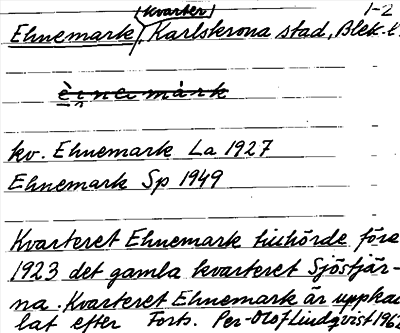 (kvarter) 1-2
Ehnemark, Karlskrona stad, Blek. l.
kv. Ehnemark La 1927
Ehnemark Sp 1949
Kvarteret Ehnemark tillhörde före
1923 det gamla kvarteret Sjöstjär-
na. Kvarteret Ehnemark är uppkal
lat efter Forts. Per-Olof Lindqvist 196